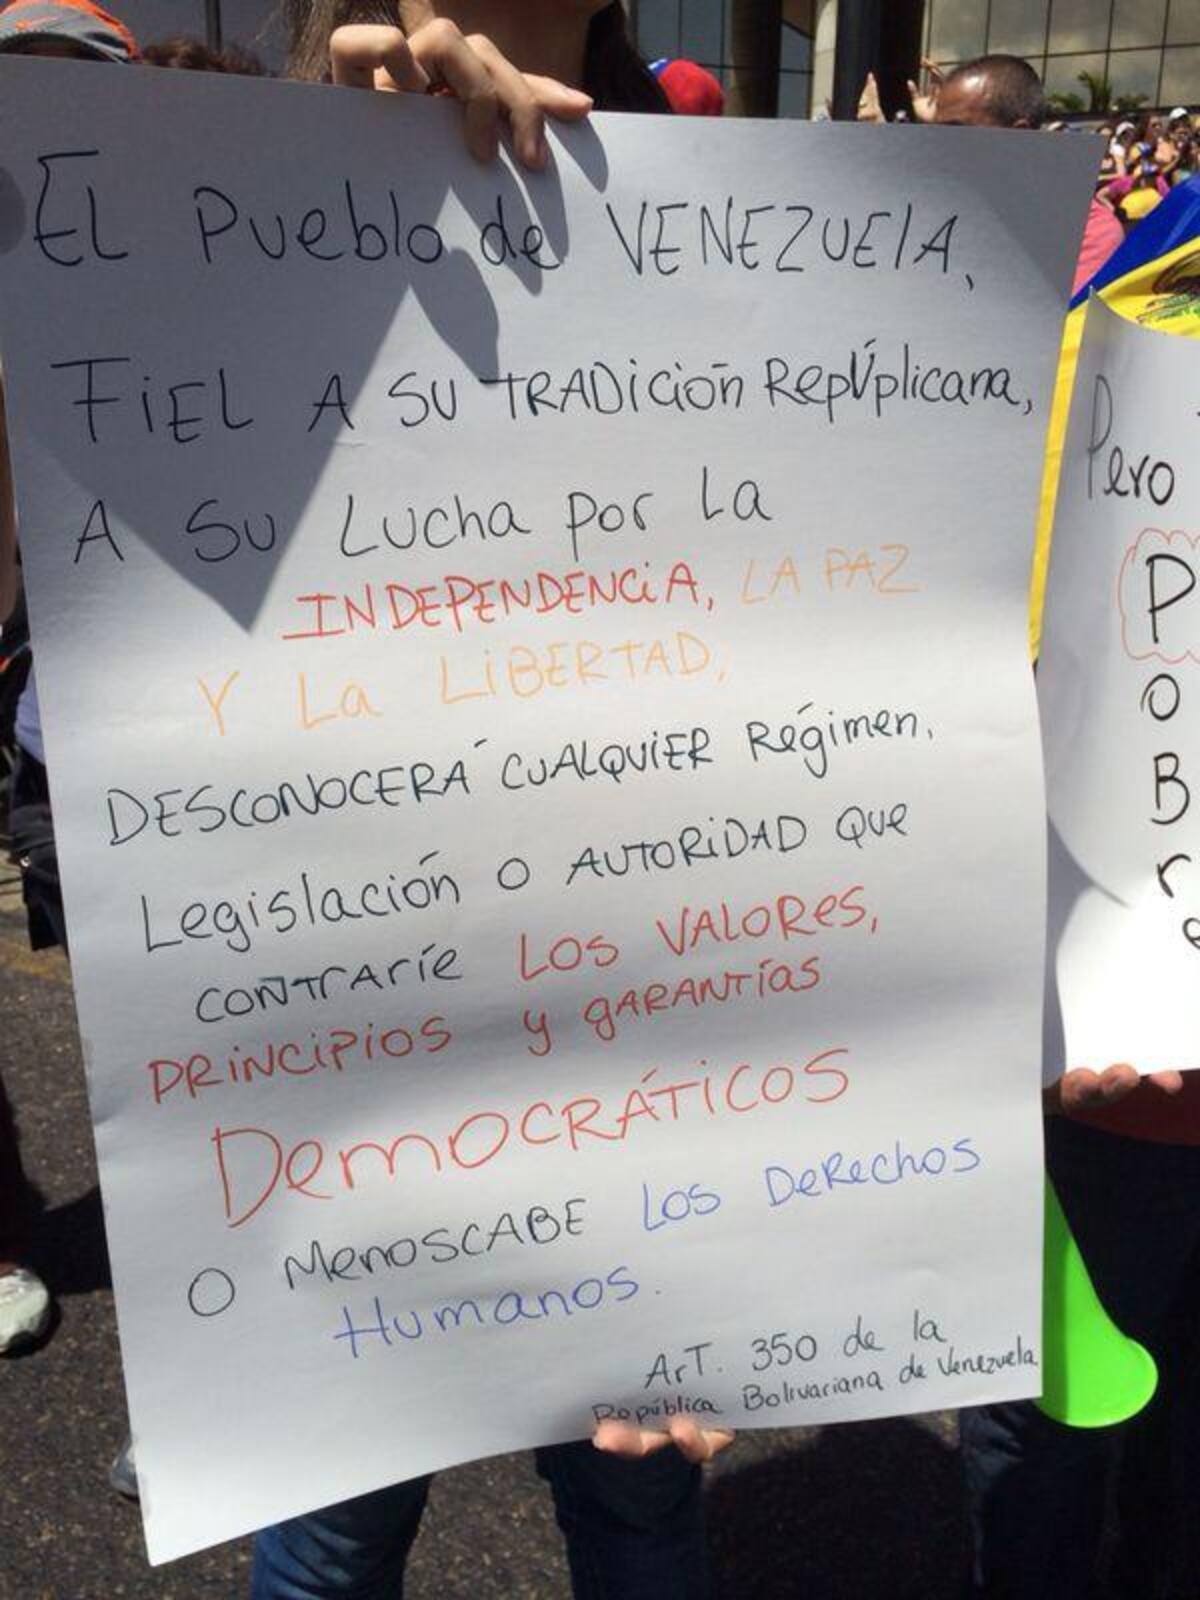 EL Pueblo de VENEZUELA,
FiEL A SU TRADiCión RepÚplicana,
A SU LUcha por La
INDEPENDENCiA, LA PAZ
Y La LiBERTAD,
DESCONOCERÁ CUALQUiER Régimen,
Legislación o AUTORiDAD que
CONTRAríe LOS VALORes,
PRiNCiPiOS y gARANTías
DemOCRÁTiCOS
O MenoSCABE LOS DeRechos
Humanos.
ArT. 350 de la
República Bolivariana de Venezuela
Pero
P
O
B
r
e